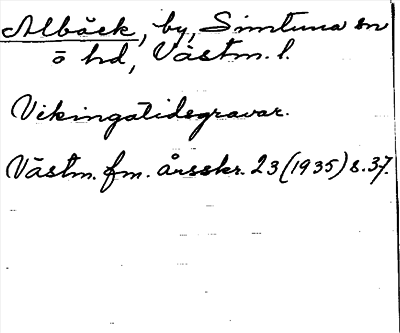 Albäck, by, Simtuna sn
o hd, Västm. l.
Vikingatidsgravar.
Västm. fm. årsskr. 23 (1935) s. 37.